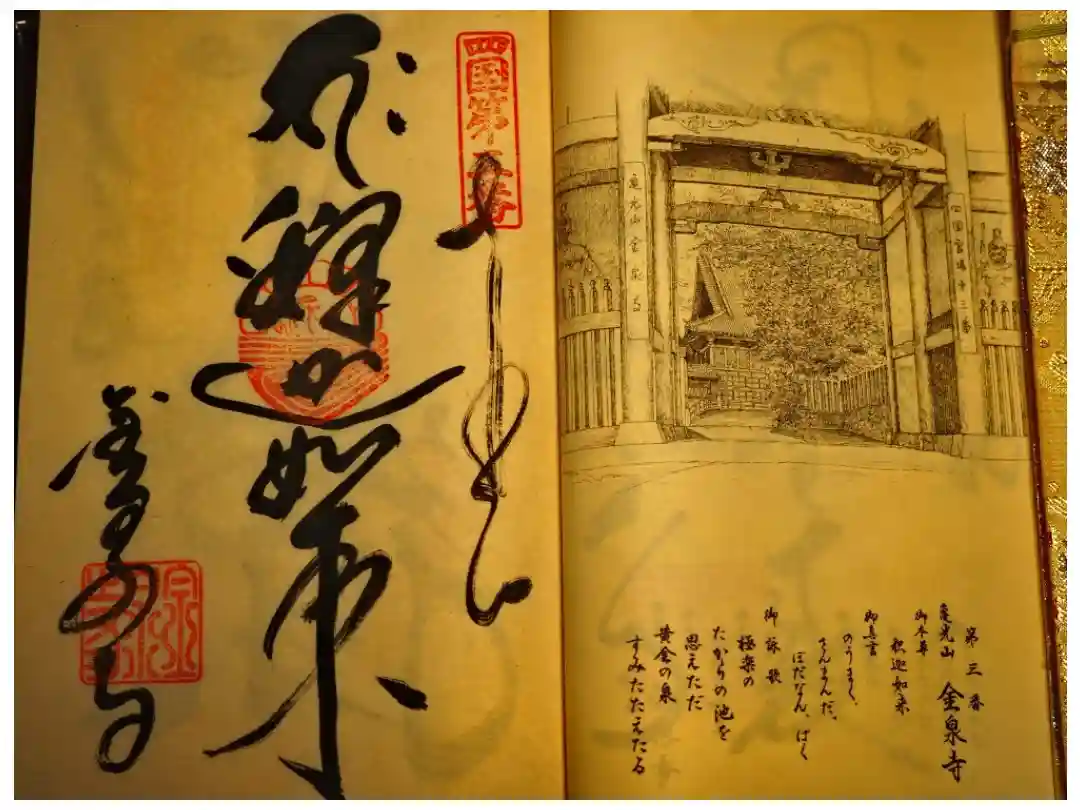 四国霊場第三番
亀光山金泉寺
第三番
亀光山 金泉寺
御本尊
釈迦如来
御真言
のうまく、
さんまんだ、
ぼだなん、ばく
御詠歌
極楽の
たからの池を
思えただ
黄金の泉
すみたたえたる
四国第三番
釋迦如来
金泉寺